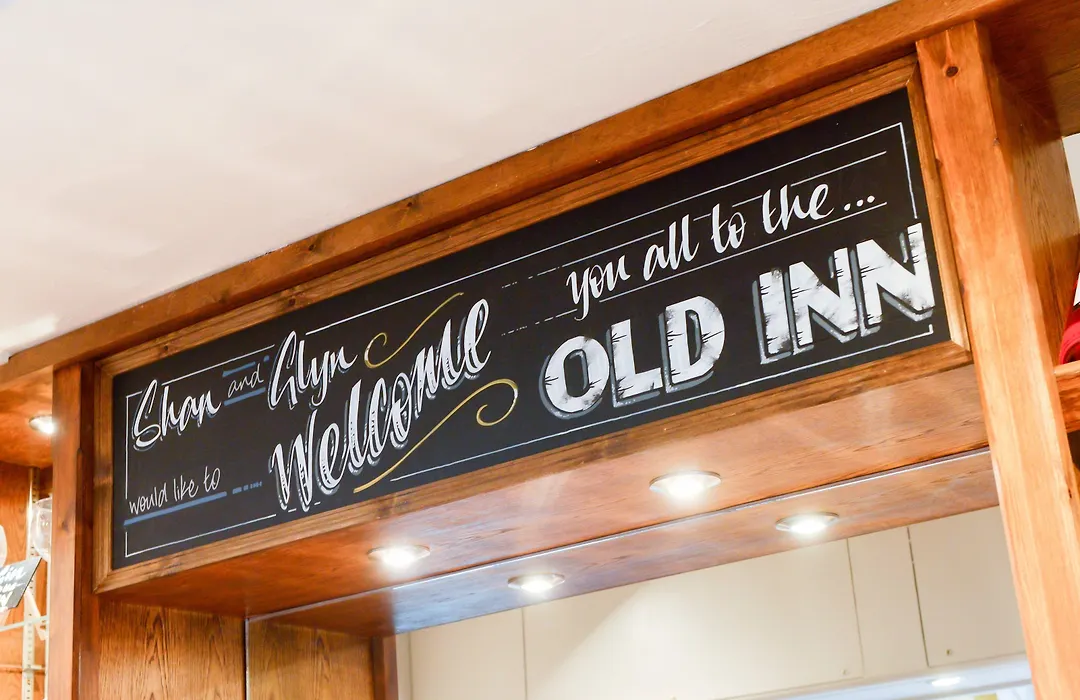 Shan and Glyn
would like to
Welcome
you all to the...
OLD INN